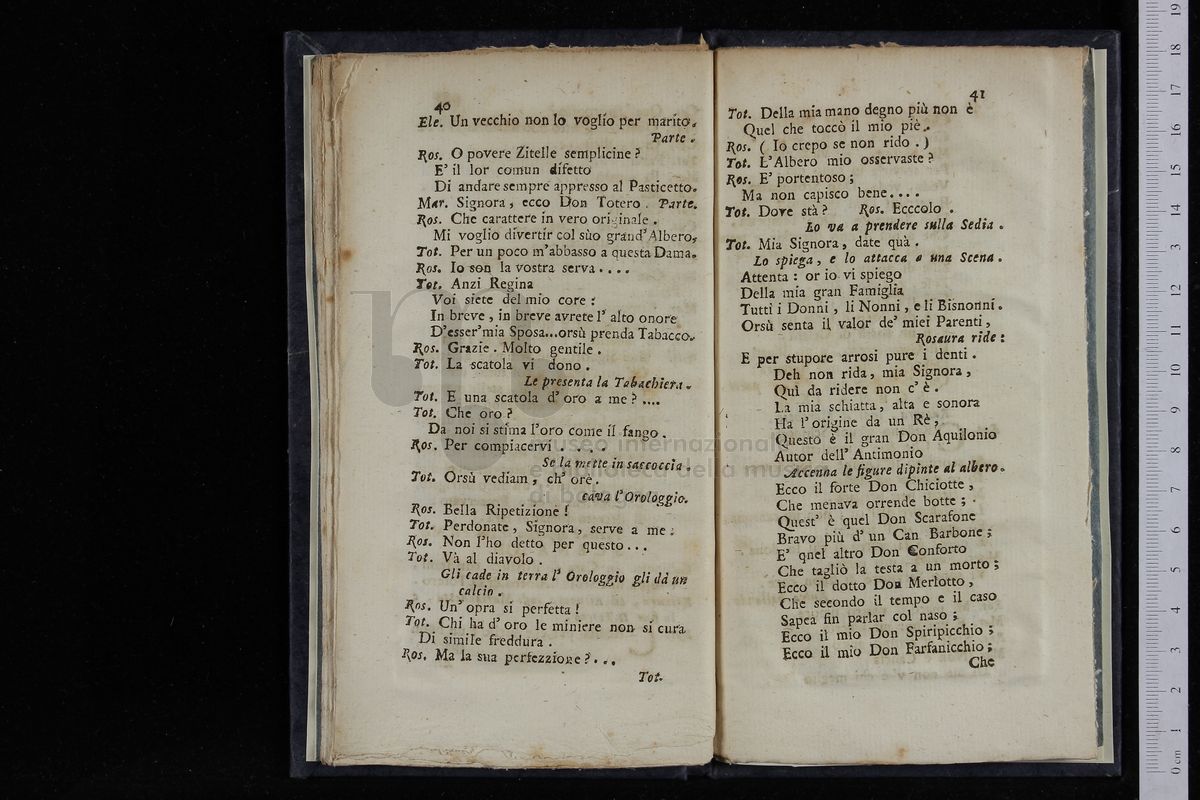 40
Ele. Un vecchio non lo voglio per marito.
Parte.
Ros. O povere Zitelle semplicine?
E' il lor comun difetto
Di andare sempre appresso al Pasticetto.
Mar. Signora, ecco Don Totero. Parte.
Ros. Che carattere in vero originale.
Mi voglio divertir col sùo grand' Albero,
Tot. Per un poco m'abbasso a questa Dama.
Ros. Io son la vostra serva....
Tot. Anzi Regina
Voi siete del mio core:
In breve, in breve avrete l' alto onore
D'esser'mia Sposa...orsù prenda Tabacco.
Ros. Grazie. Molto gentile.
Tot. La scatola vi dono.
Le presenta la Tabachiera.
Tot. E una scatola d' oro a me? ....
Tot. Che oro?
Da noi si stima l'oro come il fango.
Ros. Per compiacervi....
Se la mette in saccoccia.
Tot. Orsù vediam, ch' ore.
cava l'Orologgio.
Ros. Bella Ripetizione!
Tot. Perdonate, Signora, serve a me:
Ros. Non l'ho detto per questo...
Tot. Và al diavolo.
Gli cade in terra l' Orologgio gli dà un
calcio.
Ros. Un' opra si perfetta!
Tot. Chi ha d' oro le miniere non si cura
Di simile freddura.
Ros. Ma la sua perfezzione?...
Tot.
41
Tot. Della mia mano degno più non è
Quel che toccò il mio piè.
Ros. ( Io crepo se non rido.)
Tot. L'Albero mio osservaste?
Ros. E' portentoso;
Ma non capisco bene....
Tot. Dove stà? Ros. Ecccolo.
Lo va a prendere sulla Sedia.
Tot. Mia Signora, date quà.
Lo spiega, e lo attacca a una Scena.
Attenta: or io vi spiego
Della mia gran Famiglia
Tutti i Donni, li Nonni, e li Bisnonni.
Orsù senta il valor de' miei Parenti,
Rosaura ride:
E per stupore arrosi pure i denti.
Deh non rida, mia Signora,
Quì da ridere non c' è.
La mia schiatta, alta e sonora
Ha l' origine da un Rè;
Questo è il gran Don Aquilonio
Autor dell' Antimonio
Accenna le figure dipinte al albero.
Ecco il forte Don Chiciotte,
Che menava orrende botte;
Quest' è quel Don Scarafone
Bravo più d' un Can Barbone;
E' qnel altro Don Conforto
Che tagliò la testa a un morto;
Ecco il dotto Don Merlotto,
Che secondo il tempo e il caso
Sapea fin parlar col naso;
Ecco il mio Don Spiripicchio;
Ecco il mio Don Farfanicchio;
Che
museo internazionale
e biblioteca della musica
di bologna
0 cm 1 2 3 4 5 6 7 8 9 10 11 12 13 14 15 16 17 18 19